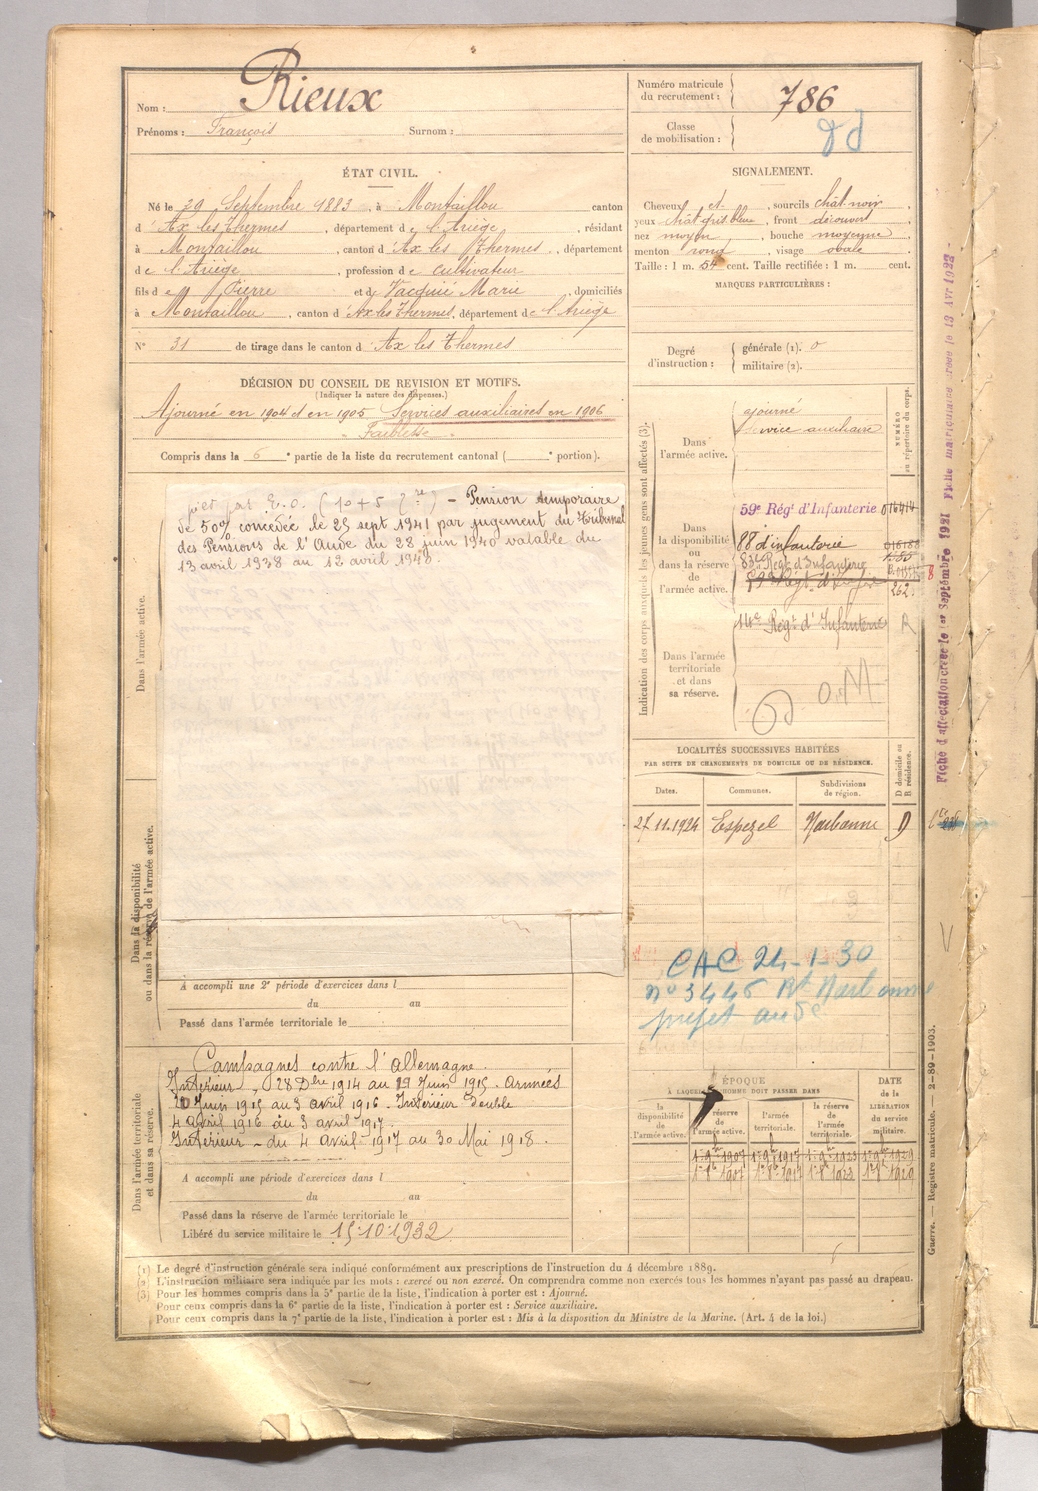 Nom : Rieux
Prénoms : François Surnom :
Numéro matricule du recrutement : 786
Classe de mobilisation :
ÉTAT CIVIL.
Né le 29 Septembre 1883, à Montaillou canton
d'Ax les Thermes, département de l'Ariège, résidant
à Montaillou, canton d'Ax les Thermes, département
de l'Ariège, profession de cultivateur
fils de Pierre et d Vacquié Marie, domiciliés
à Montaillou, canton d'Ax les Thermes, département de l'Ariège
N° 31 de tirage dans le canton d'Ax les Thermes
SIGNALEMENT.
Cheveux et, sourcils chât noir
yeux chât gris bleu, front découvert
nez moyen, bouche moyenne
menton rond, visage ovale
Taille : 1 m. 54 cent. Taille rectifiée : 1 m. cent.
MARQUES PARTICULIÈRES :
Degré d'instruction : générale (1). 0
militaire (2).
DÉCISION DU CONSEIL DE REVISION ET MOTIFS.
(Indiquer la nature des dispenses.)
Ajourné en 1904 et en 1905 Services auxiliaires en 1906
Faiblesse
Compris dans la 6e partie de la liste du recrutement cantonal ( e portion).
(10 + 5 – Pension temporaire
de 50% concédée le 25 sept 1941 par jugement du Tribunal
des Pensions de l'Aude du 28 juin 1940 valable du
13 avril 1938 au 12 avril 1940.
Dans l'armée active.
Dans la disponibilité
ou dans la réserve de l'armée active.
A accompli une 2e période d'exercices dans l
du au
Passé dans l'armée territoriale le
Dans l'armée territoriale
et dans sa réserve.
Campagnes contre l'Allemagne.
Intérieur, 28 Dbre 1914 au 19 Juin 1915. Armées
20 Juin 1915 au 3 avril 1916 - Intérieur Double
4 avril 1916 au 3 avril 1917.
Intérieur – du 4 Avril 1917 au 30 Mai 1918.
A accompli une période d'exercices dans l
du au
Passé dans la réserve de l'armée territoriale le
Libéré du service militaire le 15.10.1932
Indication des corps auxquels les jeunes gens sont affectés (3).
NUMÉRO au répertoire du corps.
Dans l'armée active.
ajourné
service auxiliaire
Dans la disponibilité ou dans la réserve de l'armée active.
59e Régt d'Infanterie
88 d'infanterie
Régt d'Infanterie
262
14e Régt d'Infanterie R
Dans l'armée territoriale et dans sa réserve.
LOCALITÉS SUCCESSIVES HABITÉES
PAR SUITE DE CHANGEMENTS DE DOMICILE OU DE RÉSIDENCE.
D domicile ou R résidence.
Dates. Communes. Subdivisions de région.
27.11.1924 Espezel Narbonne D
CAC 24-1-30
n° 3446 Narbonne
préfet aude
ÉPOQUE
À LAQUELLE L'HOMME DOIT PASSER DANS
DATE de la LIBÉRATION du service militaire.
la disponibilité de l'armée active. la réserve de l'armée active. l'armée territoriale. la réserve de l'armée territoriale.
Fiche d'affectation créée le 1er Septembre 1921 Fiche matriculaire le 13 Avr 1922
Guerre. — Registre matricule. — 2-89-1903.
(1) Le degré d'instruction générale sera indiqué conformément aux prescriptions de l'instruction du 4 décembre 1889.
(2) L'instruction militaire sera indiquée par les mots : exercé ou non exercé. On comprendra comme non exercés tous les hommes n'ayant pas passé au drapeau.
(3) Pour les hommes compris dans la 5e partie de la liste, l'indication à porter est : Ajourné.
Pour ceux compris dans la 6e partie de la liste, l'indication à porter est : Service auxiliaire.
Pour ceux compris dans la 7e partie de la liste, l'indication à porter est : Mis à la disposition du Ministre de la Marine. (Art. 4 de la loi.)